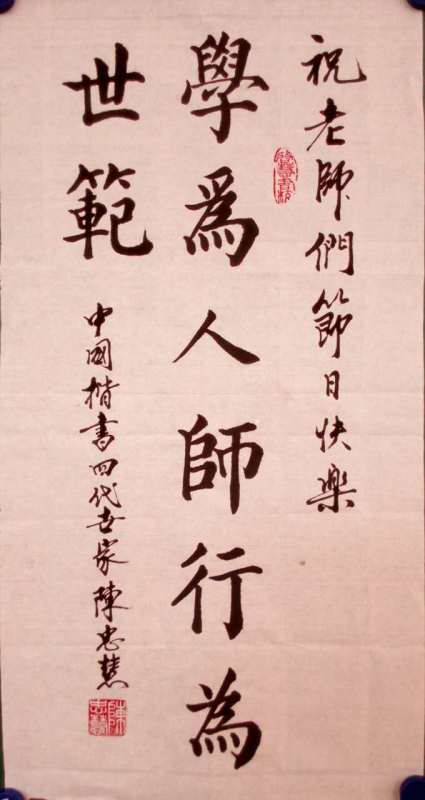 祝老師們節日快樂
學爲人師行為
世範
中國楷書四代世家陳忠慧